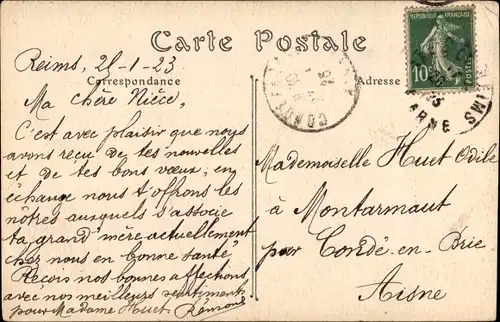 Carte Postale
Correspondance
Adresse
REPUBLIQUE FRANÇAISE
10c
POSTES
REIMS
MARNE
CONDÉ
Reims, 25-1-23
Ma chère Nièce,
C'est avec plaisir que nous
avons reçu de tes nouvelles
et de tes bons vœux; en
échange nous t'offrons les
nôtres auxquels s'associe
ta grand'mère actuellement
chez nous en bonne santé
Reçois nos bonnes affections
avec nos meilleurs sentiments
pour Madame Huet. Rémond
Mademoiselle Huet Odile
à Montarmaut
par Condé-en-Brie
Aisne